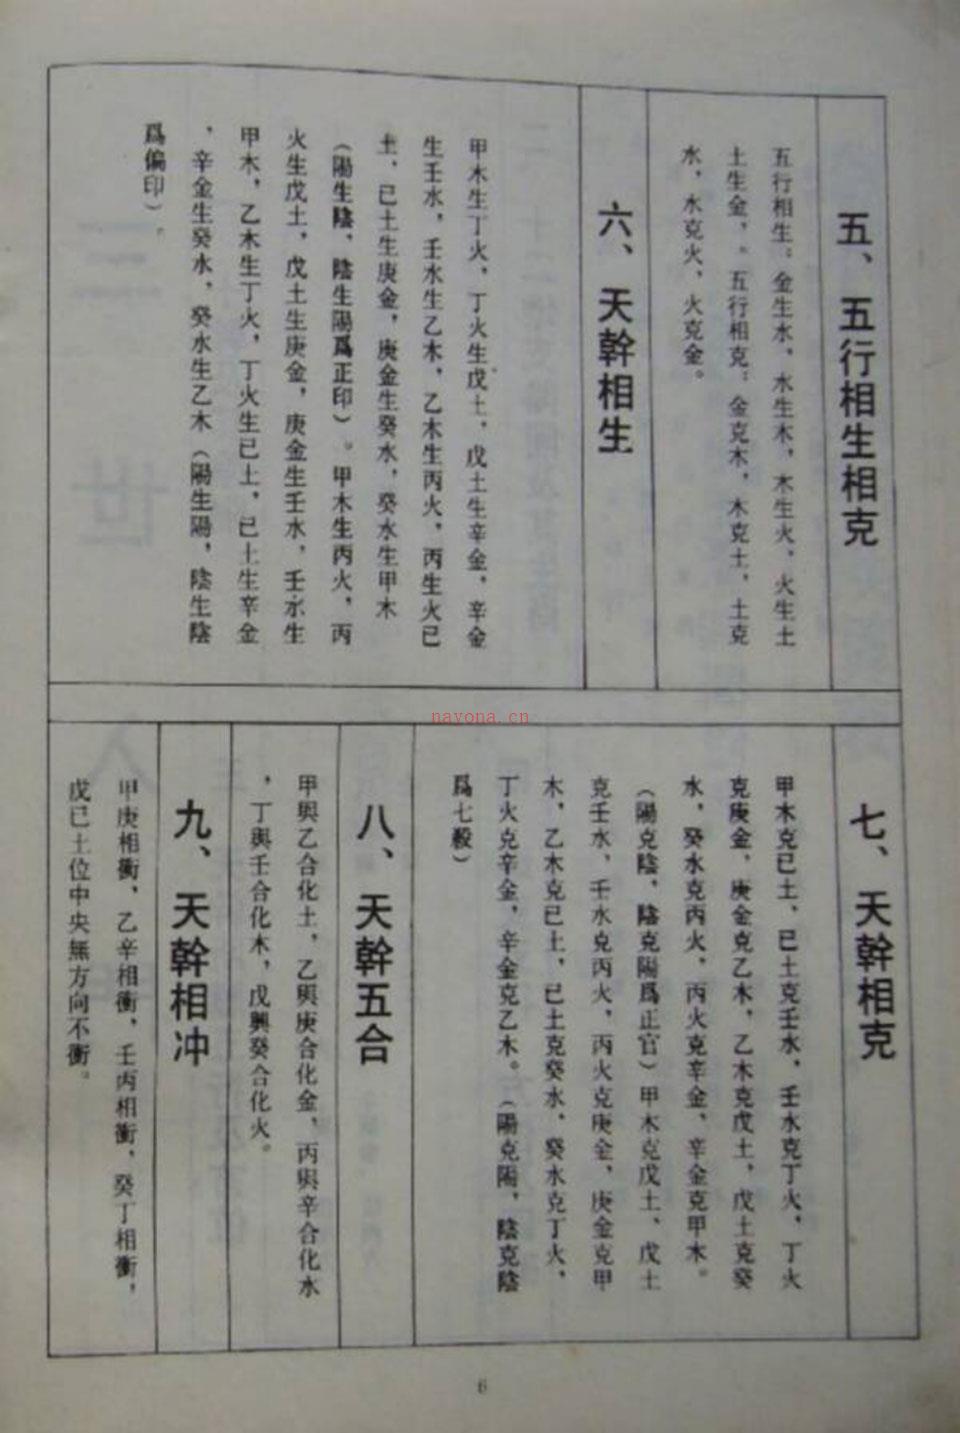 五、五行相生相克
五行相生：金生水、水生木、木生火、火生土
土生金，。五行相克：金克木，木克土，土克
水，水克火，火克金。
六、天幹相生
甲木生丁火，丁火生戊土，戊土生辛金，辛金
生壬水，壬水生乙木，乙木生丙火，丙生火已
土，已土生庚金，庚金生癸水，癸水生甲木
（陽生陰，陰生陽爲正印）。甲木生丙火，丙
火生戊土，戊土生庚金，庚金生壬水，壬水生
甲木，乙木生丁火，丁火生已土，已土生辛金
，辛金生癸水，癸水生乙木（陽生陽，陰生陰
爲偏印）。
七、天幹相克
甲木克已土、已土克壬水、壬水克丁火，丁火
克庚金，庚金克乙木，乙木克戊土，戊土克癸
水，癸水克丙火，丙火克辛金，辛金克甲木。
（陽克陰，陰克陽爲正官）甲木克戊土、戊土
克壬水，壬水克丙火，丙火克庚金，庚金克甲
木，乙木克已土，已土克癸水，癸水克丁火，
丁火克辛金，辛金克乙木。（陽克陽，陰克陰
爲七殺）
八、天幹五合
甲與乙合化土，乙與庚合化金，丙與辛合化水
，丁與壬合化木，戊興癸合化火。
九、天幹相冲
甲庚相衝，乙辛相衝，壬丙相衝，癸丁相衝，
戊已土位中央無方向不衝。
nayona.cn
6